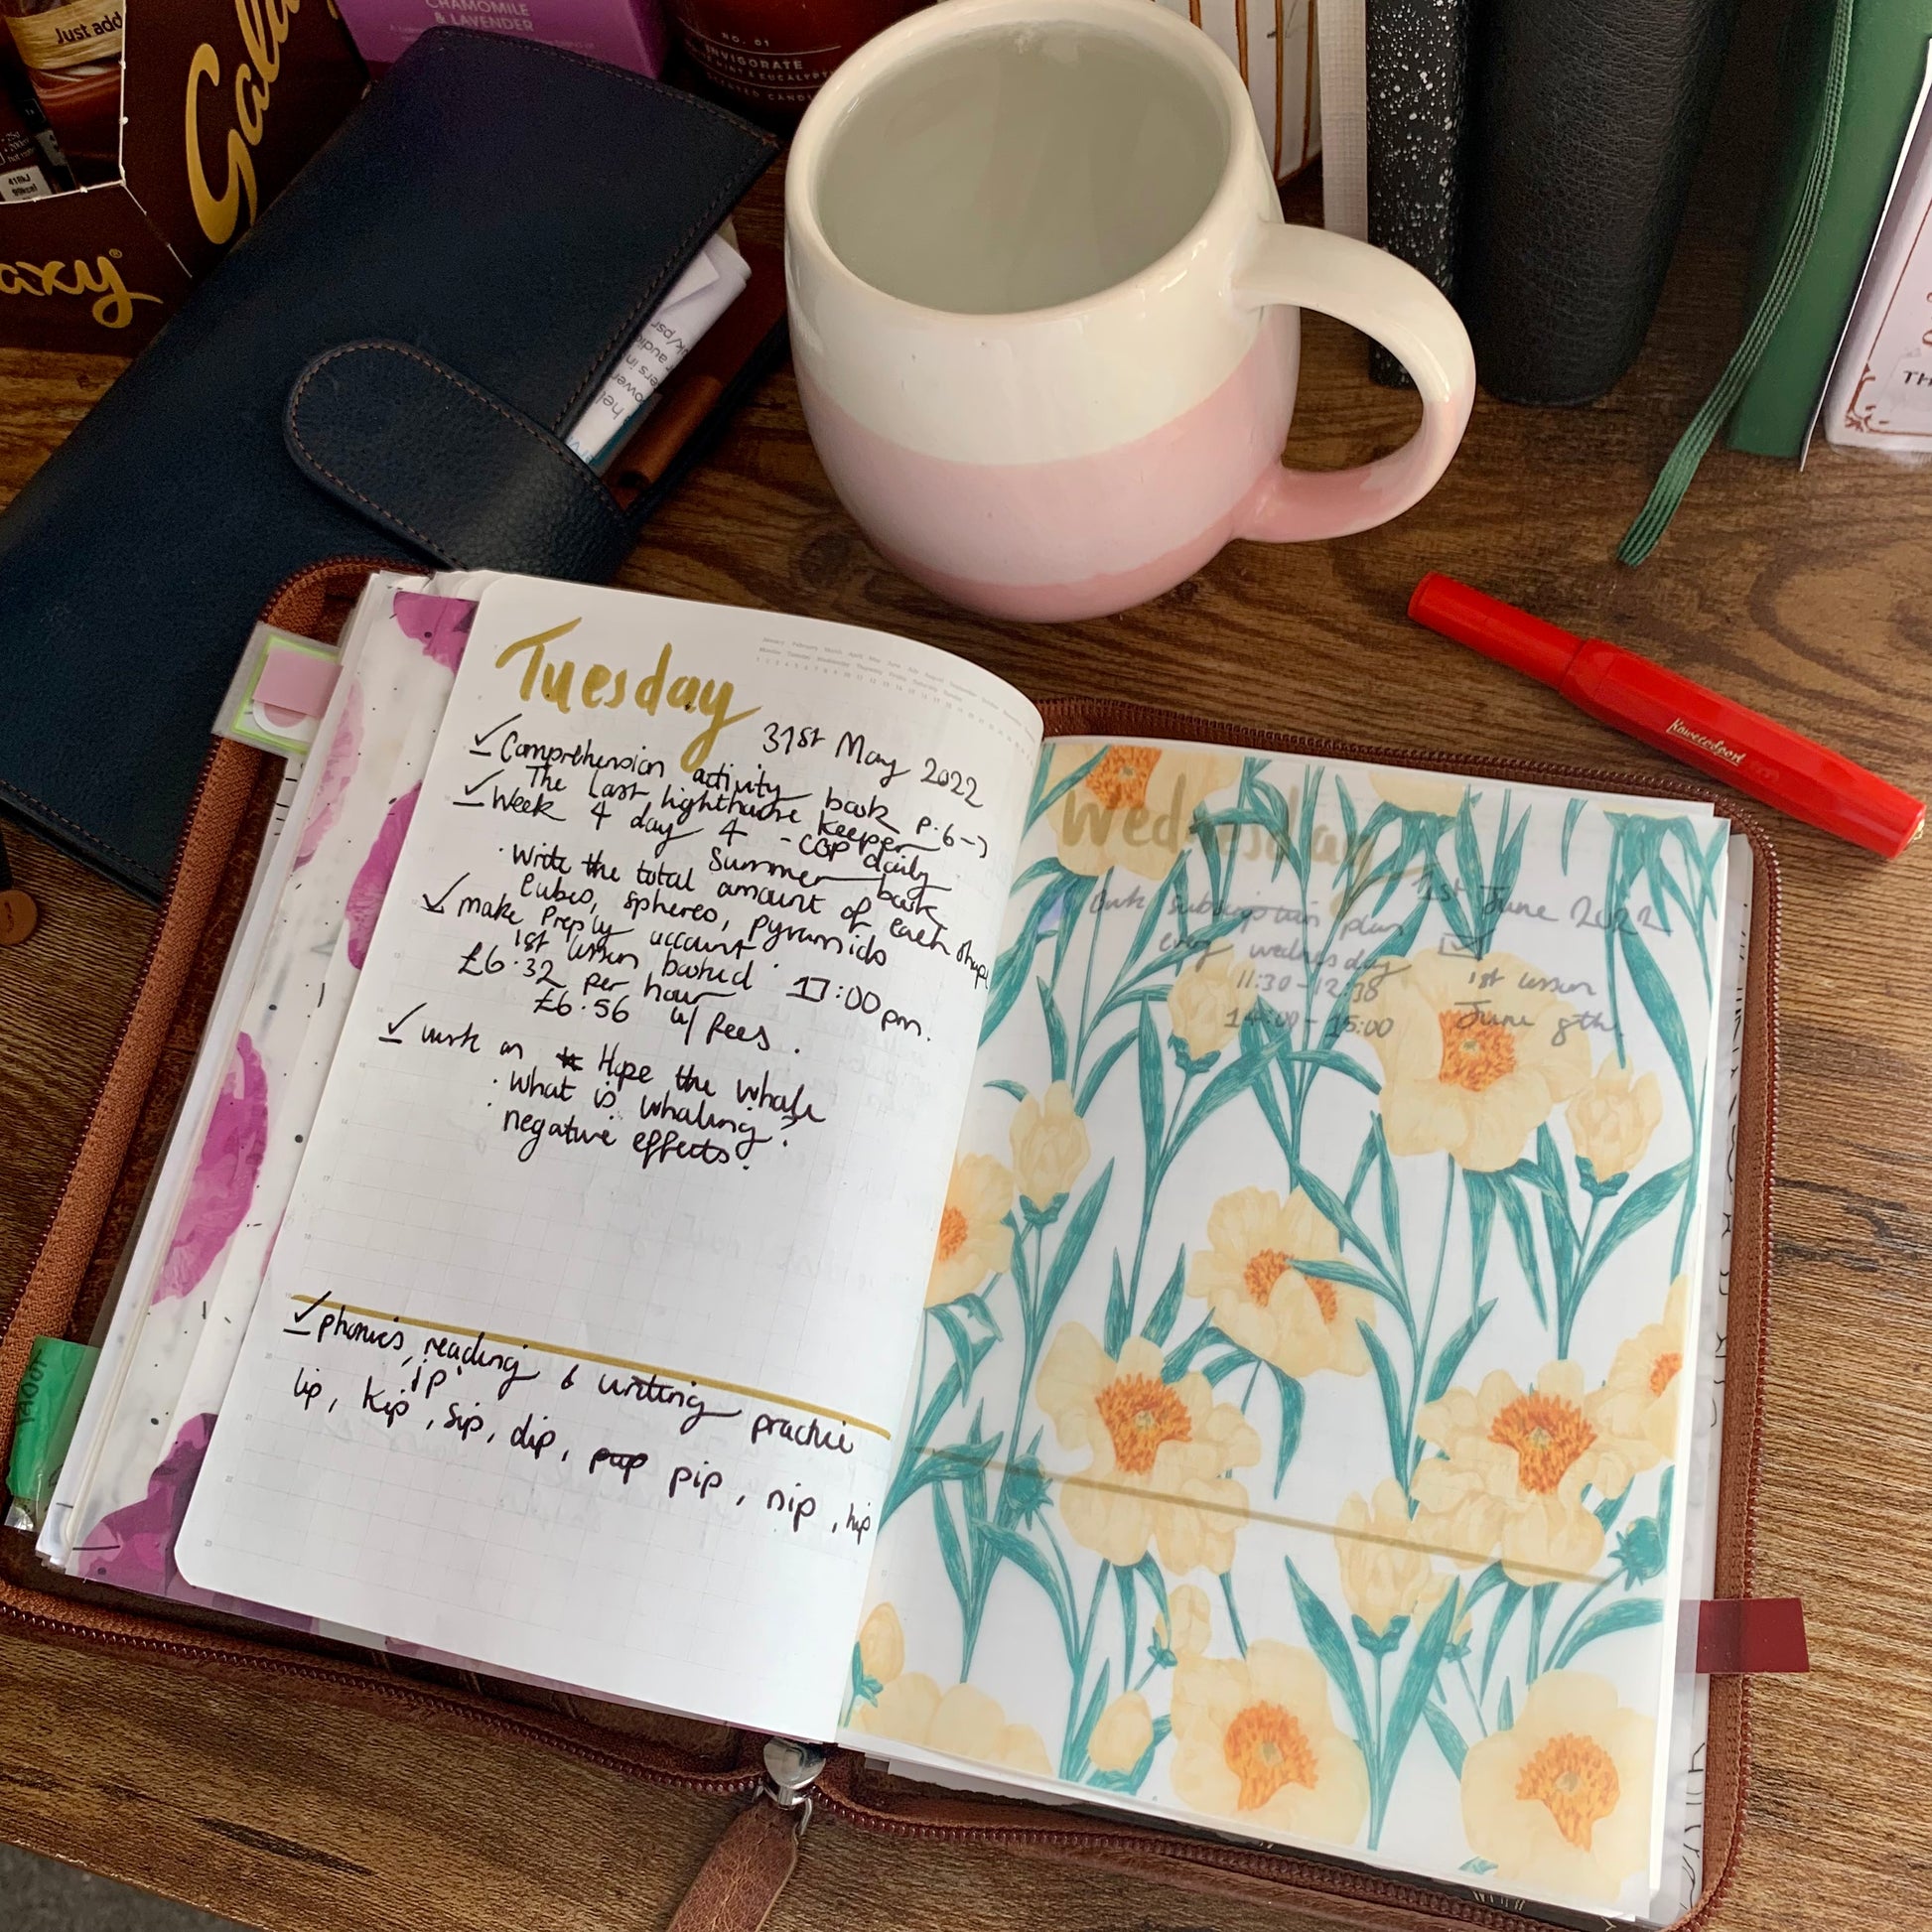 Just add
Galaxy
axy®
418kJ
99kcal
CHAMOMILE
& LAVENDER
NO. 01
INVIGORATE
MINT & EUCALYPT
Kaweco
Tuesday
31st May 2022
Comprehension activity book p.6->
The last lighthouse keeper
Week 4 day 4 - CGP daily
Summer book
· Write the total amount of each shape
cubes, spheres, pyramids
make Preply account
1st lesson booked 17:00pm.
£6.32 per hour
£6.56 w/ fees.
work on Hope the whale
· What is whaling?
· negative effects?
phonics, reading & writing practice
'ip'
lip, kip, sip, dip, pup pip, nip, hip
Wednesday
1st June 2022
subscription plan
every wednesday
11:30-12:30
14:00-15:00
1st lesson
June 8th.
TH